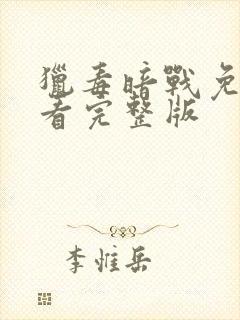 獵毒暗戰免
看完整版
李惟岳